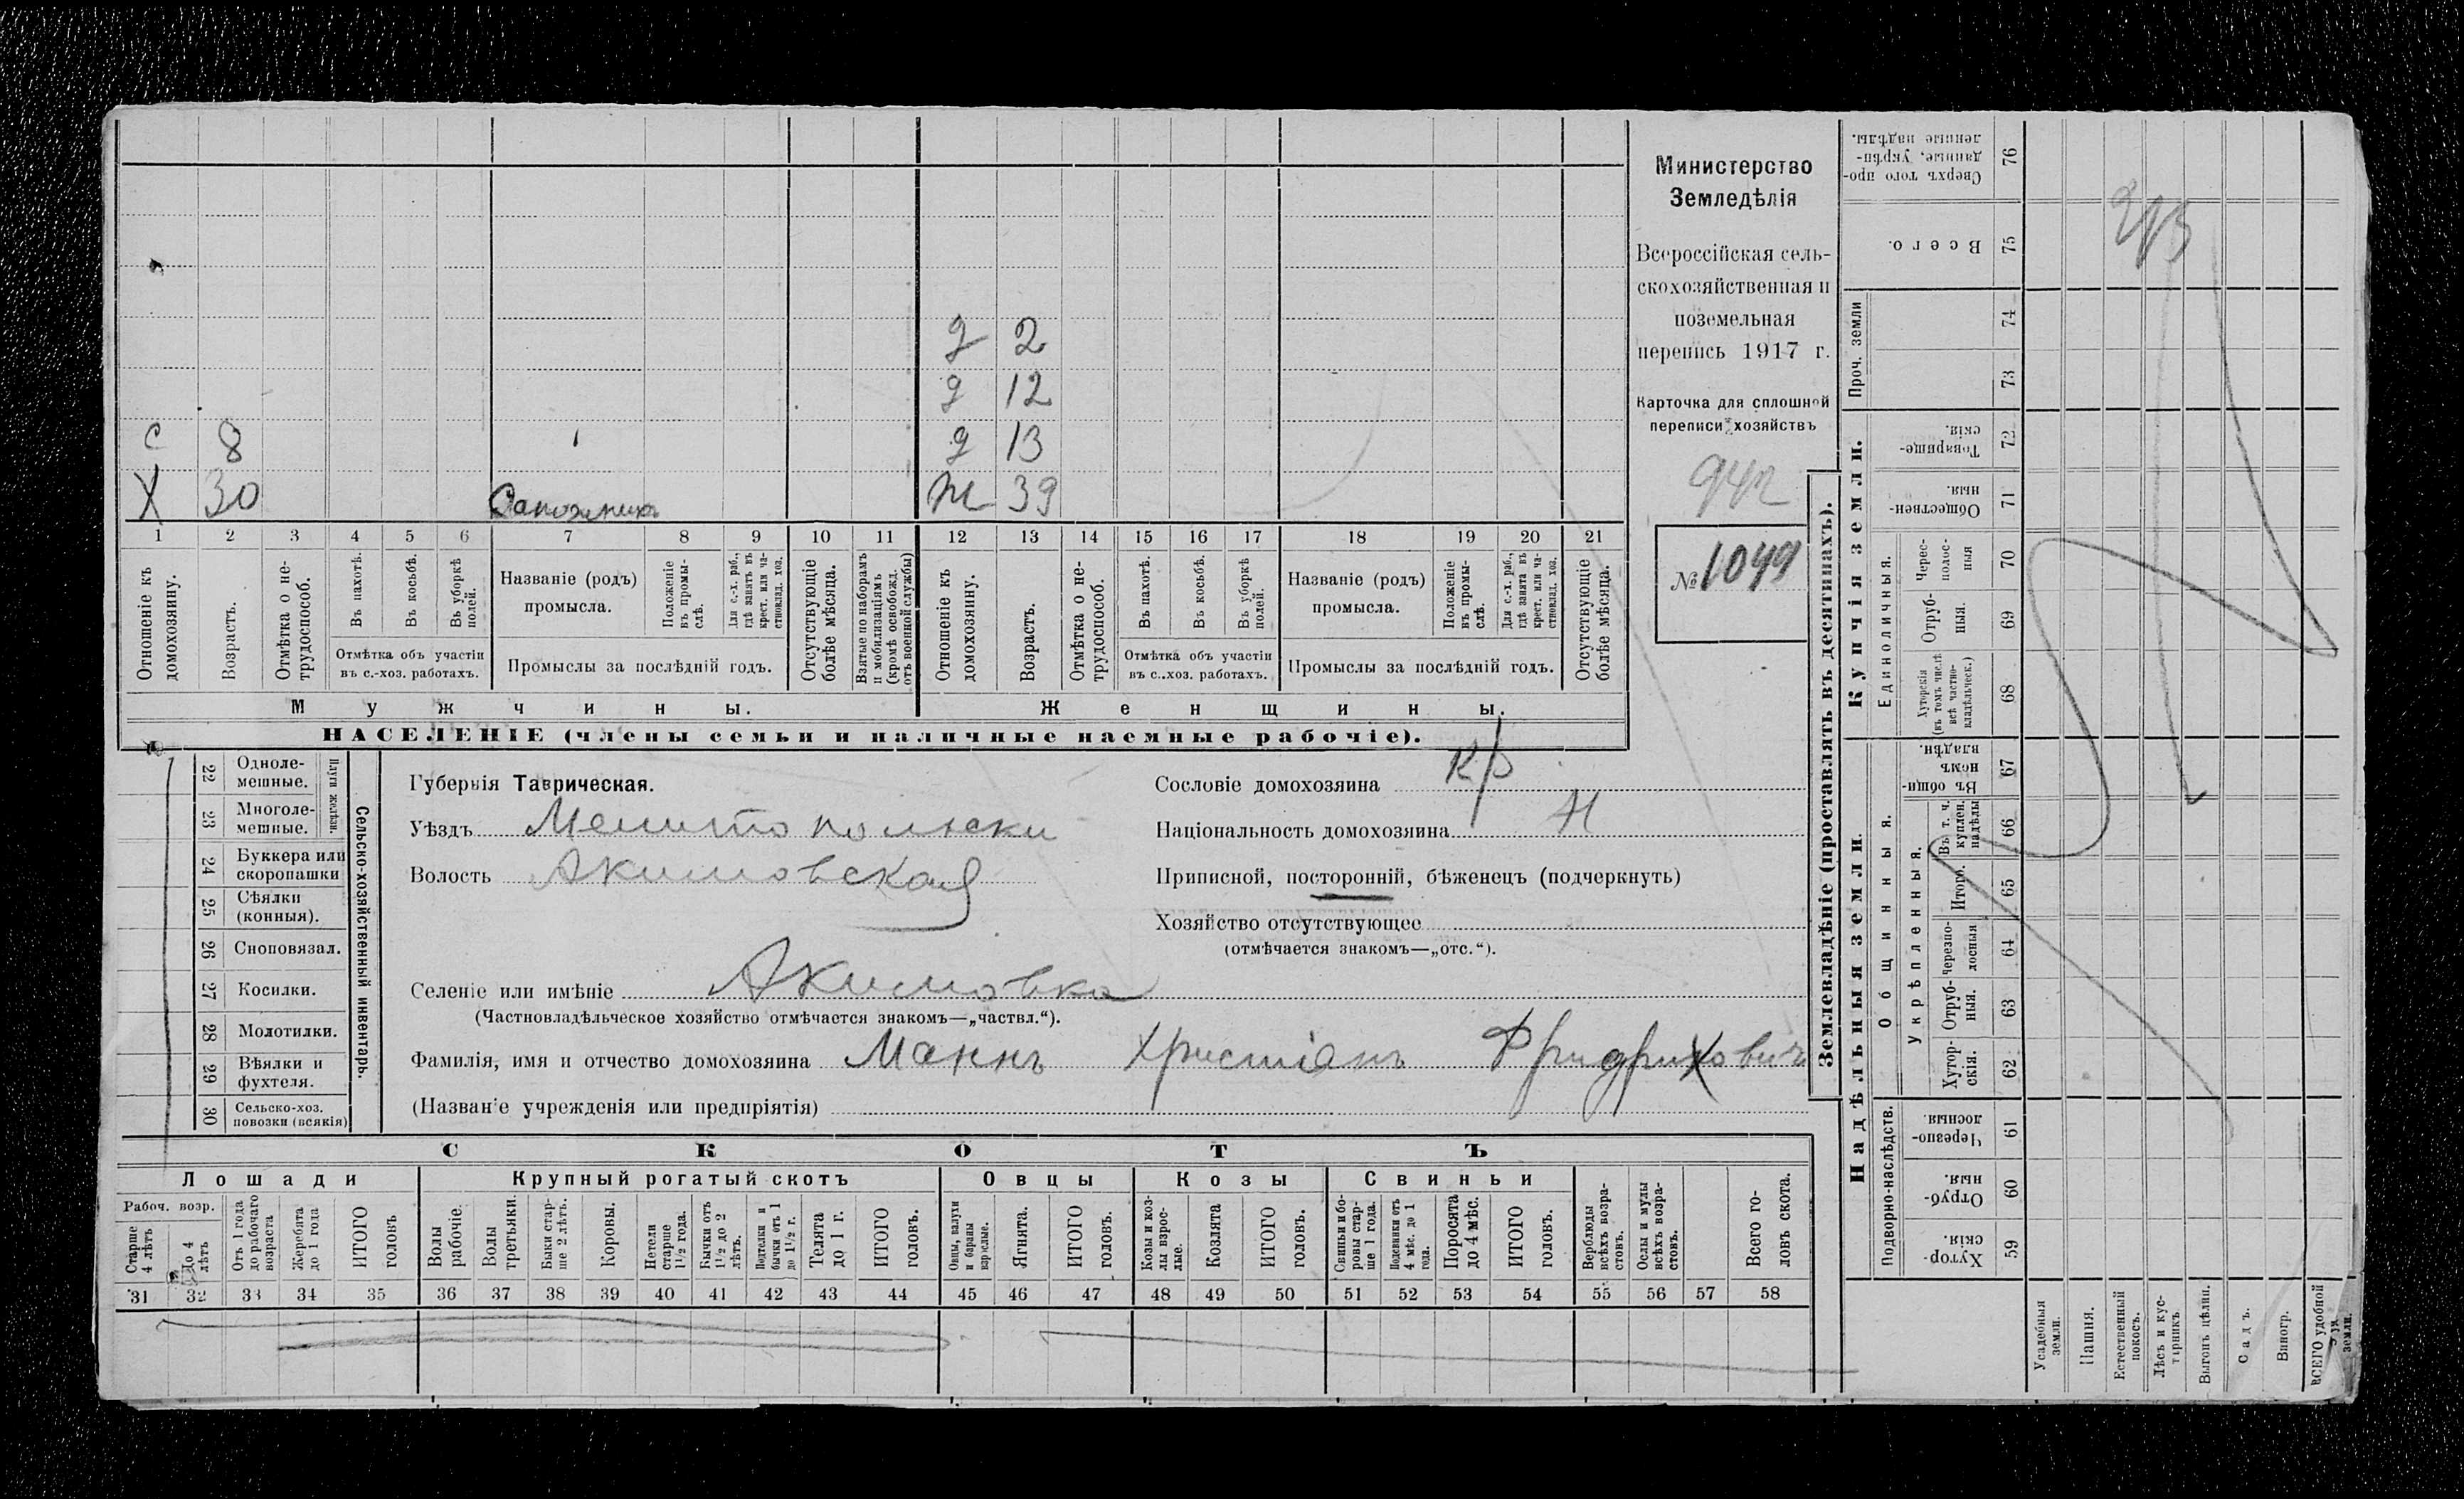 д 2
д 12
с 8 д 13
Х 30 Сапожникъ ж 39
1 2 3 4 5 6 7 8 9 10 11 12 13 14 15 16 17 18 19 20 21
Отношеніе къ домохозяину.
Возрастъ.
Отмѣтка о не-
трудоспособ.
Въ пахотѣ.
Въ косьбѣ.
Въ уборкѣ
полей.
Отмѣтка объ участіи
въ с.-хоз. работахъ.
Названіе (родъ)
промысла.
Положеніе
въ промы-
слѣ.
Для с.-х. раб.,
гдѣ занятъ въ
крест. или ча-
стновлад. хоз.
Промыслы за послѣдній годъ.
Отсутствующіе
болѣе мѣсяца.
Взятые по наборамъ
и мобилизаціямъ
(кромѣ освобожд.
отъ военной службы)
Отношеніе къ
домохозяину.
Возрастъ.
Отмѣтка о не-
трудоспособ.
Въ пахотѣ.
Въ косьбѣ.
Въ уборкѣ
полей.
Отмѣтка объ участіи
въ с..хоз. работахъ.
Названіе (родъ)
промысла.
Положеніе
въ промы-
слѣ.
Для с.-х. раб.,
гдѣ занята въ
крест. или ча-
стновлад. хоз.
Промыслы за послѣдній годъ.
Отсутствующіе
болѣе мѣсяца.
Мужчины.
Женщины.
НАСЕЛЕНІЕ (члены семьи и наличные наемные рабочіе).
Министерство
Земледѣлія
Всероссійская сель-
скохозяйственная и
поземельная
перепись 1917 г.
Карточка для сплошной
переписи хозяйствъ
942
№ 1049
22 Одноле-
мешные.
23 Многоле-
мешные.
Плуги желѣзн.
24 Буккера или
скоропашки
25 Сѣялки
(конныя).
26 Сноповязал.
27 Косилки.
28 Молотилки.
29 Вѣялки и
фухтеля.
30 Сельско-хоз.
повозки (всякія)
Сельско-хозяйственный инвентарь.
Губернія Таврическая.
Уѣздъ Мелитопольски
Волость Акимовская
Сословіе домохозяина кр
Національность домохозяина Н
Приписной, посторонній, бѣженецъ (подчеркнуть)
Хозяйство отсутствующее
(отмѣчается знакомъ—„отс.“).
Селеніе или имѣніе Акимовка
(Частновладѣльческое хозяйство отмѣчается знакомъ—„частвл.“).
Фамилія, имя и отчество домохозяина Маннъ Христіанъ Фридрихович
(Названіе учрежденія или предпріятія)
СКОТЪ
Лошади
Крупный рогатый скотъ
Овцы
Козы
Свиньи
Рабоч. возр.
Старше
4 лѣтъ
До 4
лѣтъ
Отъ 1 года
до рабочаго
возраста
Жеребята
до 1 года
ИТОГО
головъ
Волы
рабочіе.
Волы
третьяки.
Быки стар-
ше 2 лѣтъ.
Коровы.
Нетели
старше
1½ года.
Бычки отъ
1½ до 2
лѣтъ.
Подтелки и
бычки отъ 1
до 1½ г.
Телята
до 1 г.
ИТОГО
головъ.
Овцы, валухи
и бараны
взрослые.
Ягнята.
ИТОГО
головъ.
Козы и коз-
лы взрос-
лые.
Козлята
ИТОГО
головъ.
Свиньи и бо-
ровы стар-
ше 1 года.
Подсвинки отъ
4 мѣс. до 1
года.
Поросята
до 4 мѣс.
ИТОГО
головъ.
Верблюды
всѣхъ возра-
стовъ.
Ослы и мулы
всѣхъ возра-
стовъ.
Всего го-
ловъ скота.
31 32 33 34 35 36 37 38 39 40 41 42 43 44 45 46 47 48 49 50 51 52 53 54 55 56 57 58
Землевладѣніе (проставлять въ десятинахъ).
Купчія земли.
Надѣльныя земли.
Сверхъ того про-
данные, укрѣп-
ленные надѣлы.
76
Всего.
75
Проч. земли
74
73
Товарище-
скія.
72
Обществен-
ныя.
71
Единоличныя.
Черес-
полос-
ныя
70
Отруб-
ныя.
69
Хуторскія
(въ томъ числѣ
всѣ частно-
владѣльческ.)
68
Общинныя.
Въ общин-
номъ
владѣн.
67
Укрѣпленныя.
Въ т. ч.
куплен.
надѣлы
66
Итого.
65
Черезпо-
лосныя
64
Отруб-
ныя.
63
Хутор-
скія.
62
Подворно-наслѣдств.
Черезпо-
лосныя.
61
Отруб-
ныя.
60
Хутор-
скія.
59
Усадебныя
земли.
Пашня.
Естественный
покосъ.
Лѣсъ и кус-
тарникъ
Выгонъ цѣлин.
Садъ.
Виногр.
ВСЕГО удобной
земли.